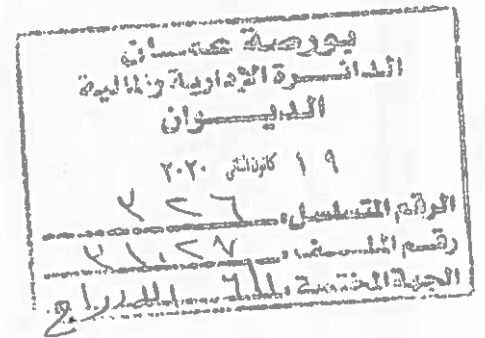 بورصة عمان
الدائرة الإدارية والمالية
الديوان
١٩ كانون الثاني ٢٠٢٠
الرقم المتسلسل:
رقم الملف:
الجهة المختصة: الادراج